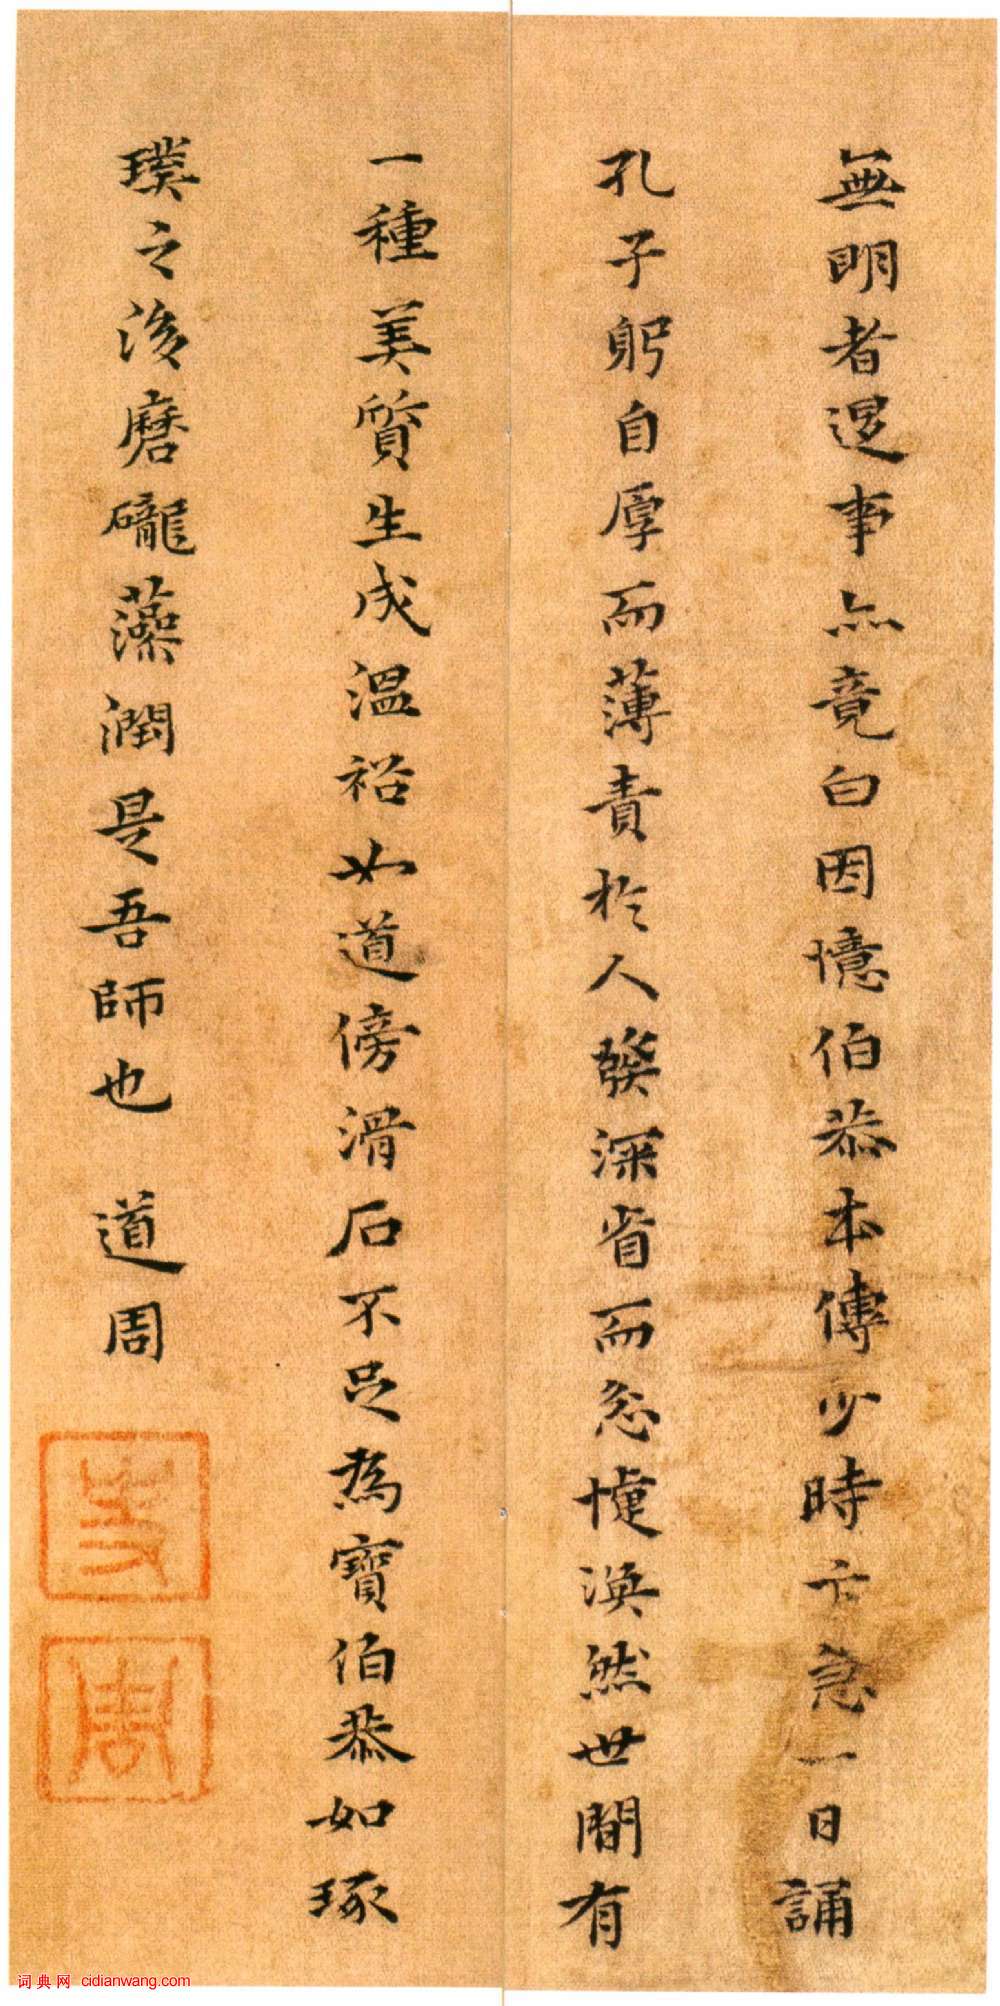 無明者退事亦竟白因憶伯恭本傳少時卞急一日誦
孔子躬自厚而薄責於人發深省而忿懥渙然世間有
一種美質生成溫裕如道傍滑石不足為寶伯恭如琢
璞之後磨礲藻潤是吾師也 道周
道周
词典网 cidianwang.com